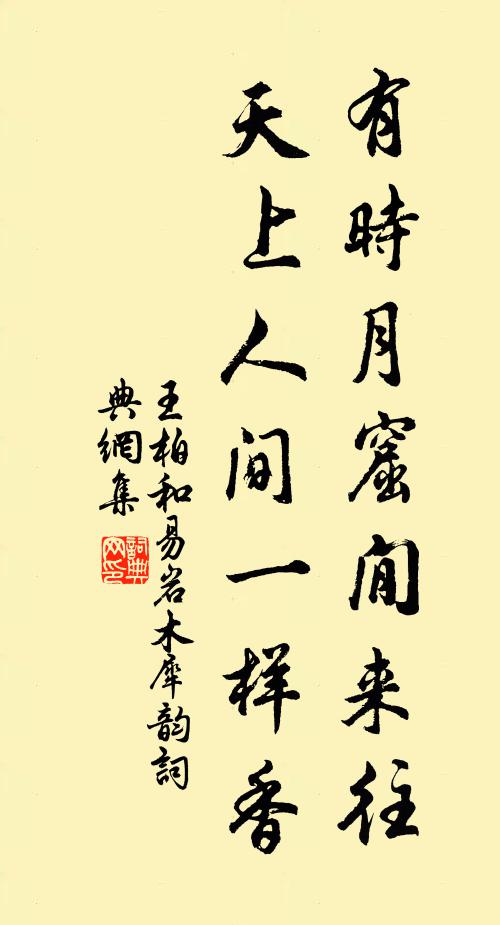 有時月窟閒来往
天上人间一样香
王柏和易岩木犀韵詞
典網集
詞典
网印